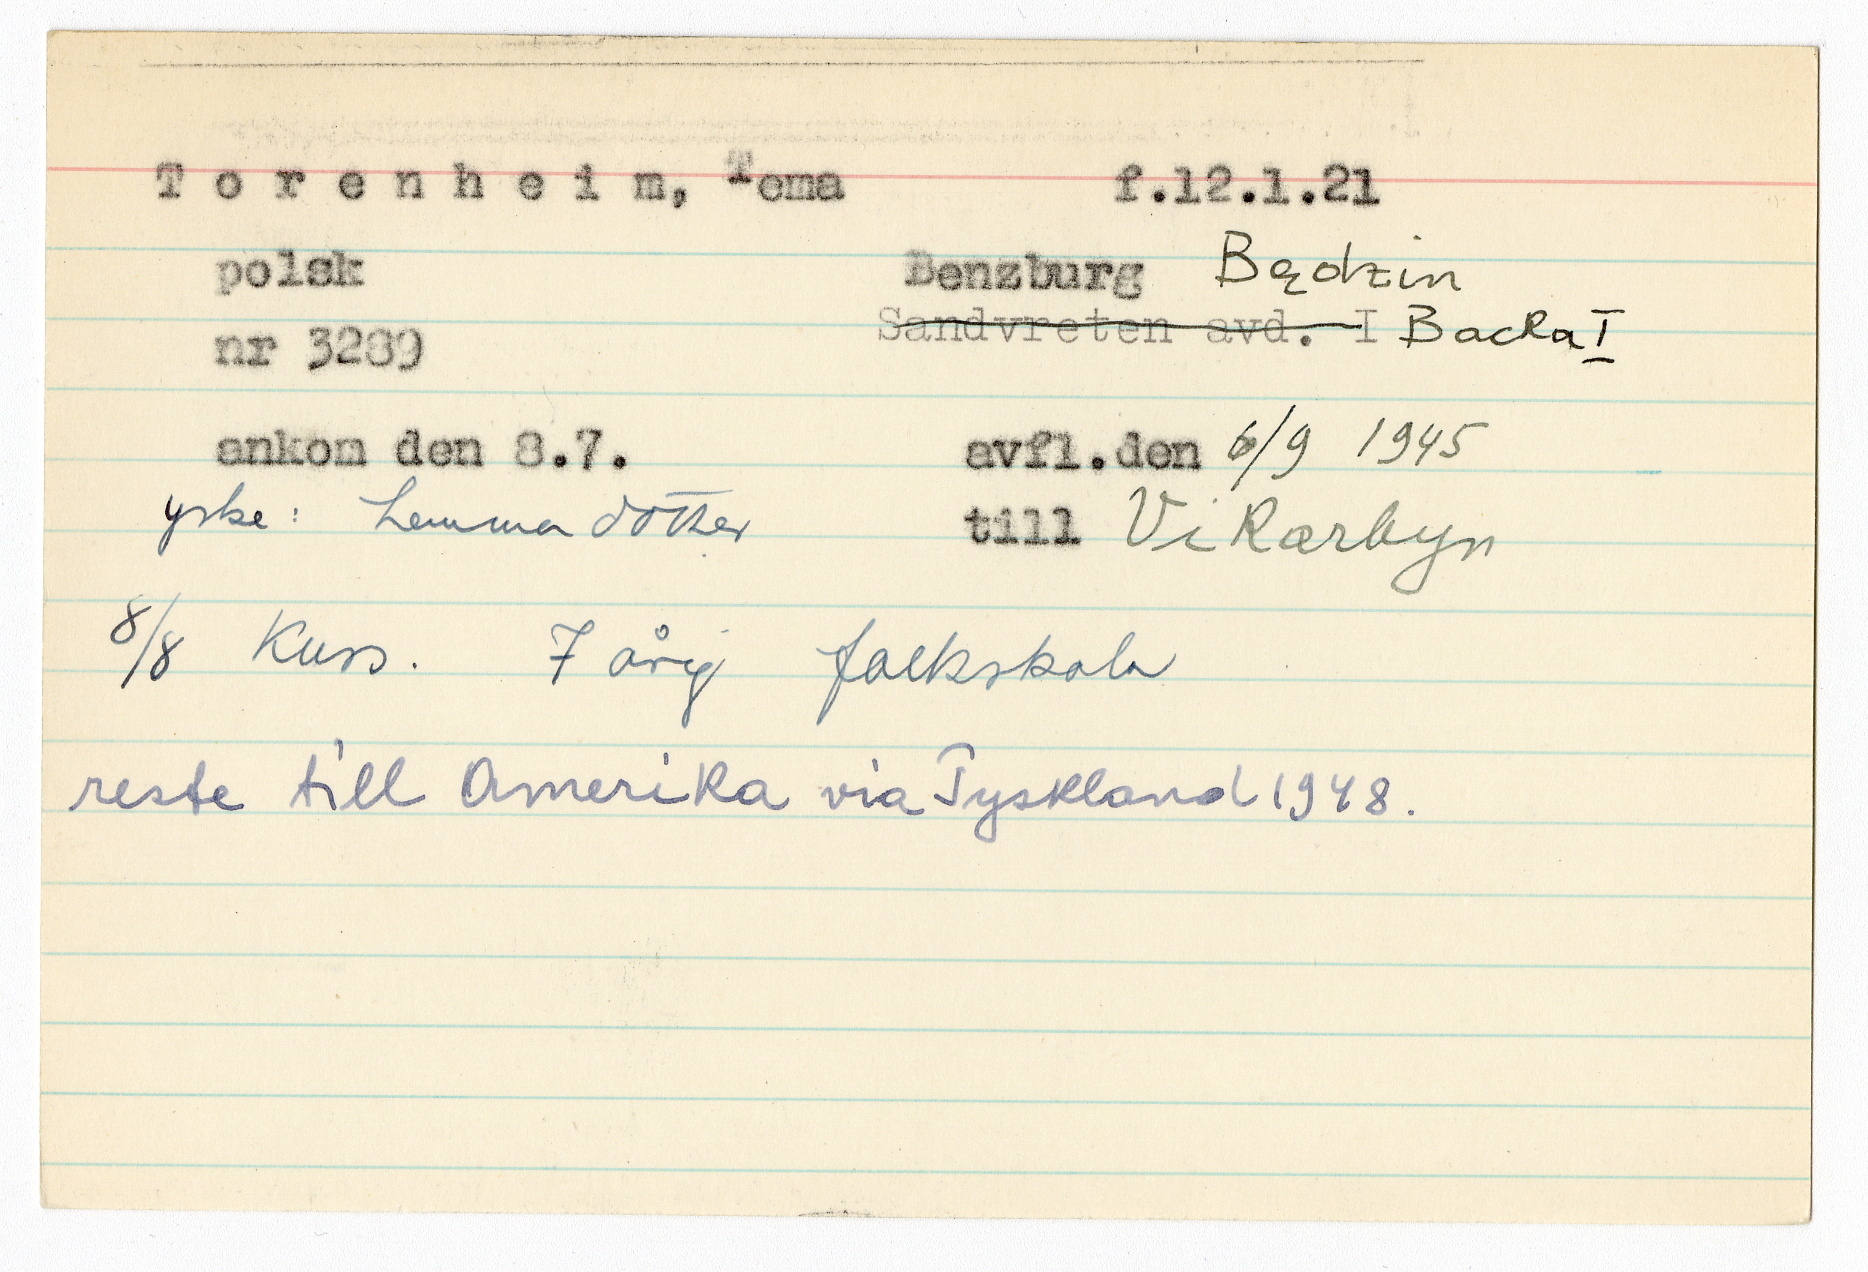 Torenheim, Tema f.12.1.21
polsk Benzburg Będzin
nr 3289 Sandvreten avd. I Backa I
ankom den 8.7. avfl.den 6/9 1945
yrke: hemmadotter till Vikarbyn
8/8 Kurs. 7 årig folkskola
reste till Amerika via Tyskland 1948.